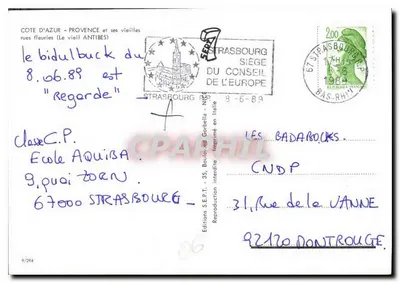 COTE D'AZUR - PROVENCE et ses vieilles
rues fleuries (Le vieil ANTIBES)
le bidulbuck du
8.06.89 est
"Regarde"
Classe C.P.
Ecole AQUIBA.
9, quai ZORN.
67000 STRASBOURG
9/294
Editions S.E.P.T. - 35, Boulevard Gorbella - NICE
Reproduction interdite - Imprimé en Italie
STRASBOURG
SIÈGE
DU CONSEIL
DE L'EUROPE
STRASBOURG RP 8-6-89
67 STRASBOURG
BAS-RHIN
2,00
LES BADABOCKS.
CNDP
31, Rue de la VANNE
92120 MONTROUGE